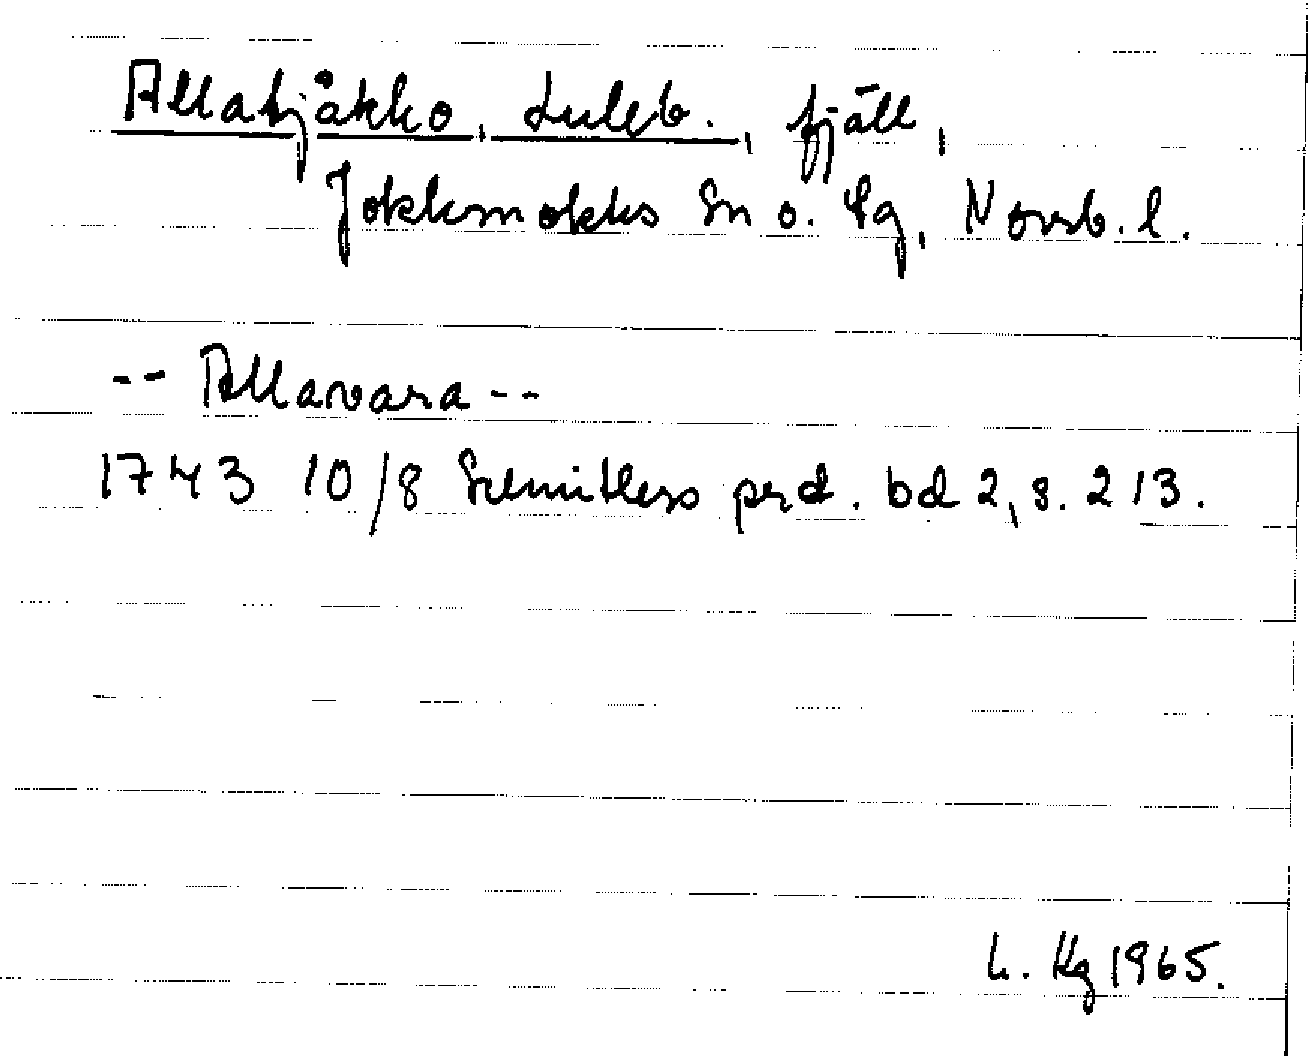 Allatjåkko, Luleb., fjäll,
Jokkmokks sn o. tg, Norrb. l.
-- Allavara --
1743 10/8 Schnitlers prot. bd 2, s. 213.
L. Hg 1965.